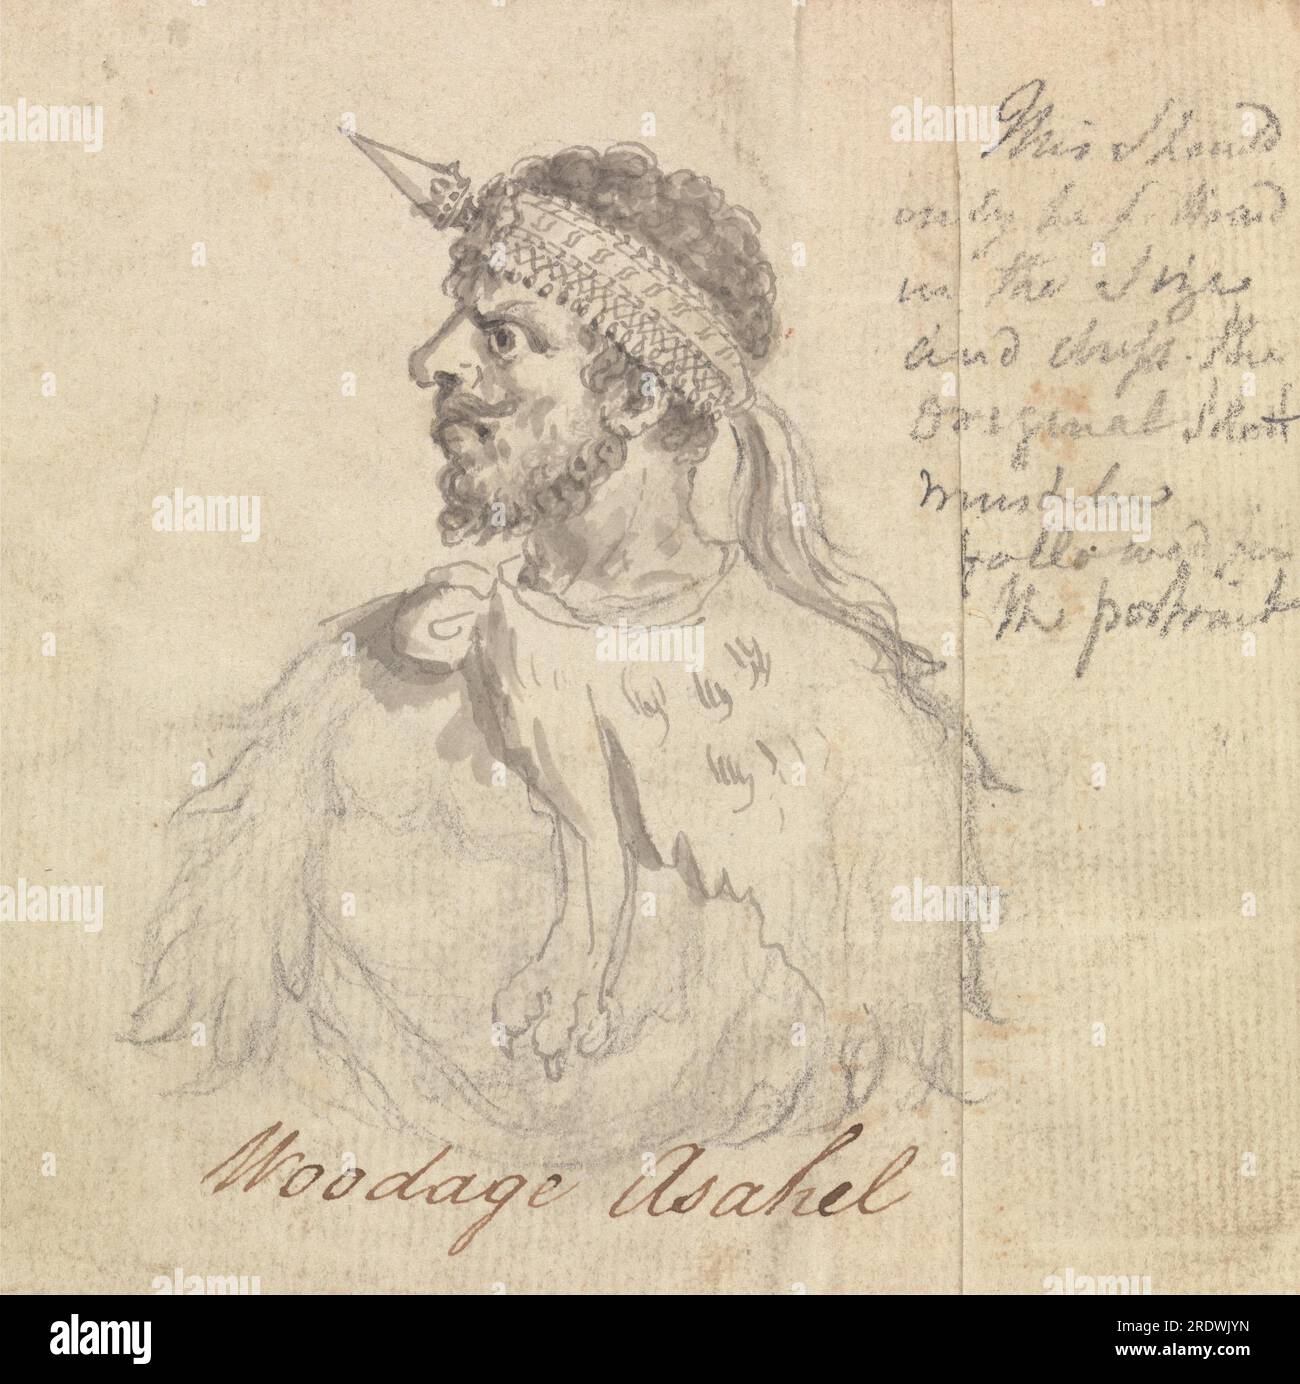 This should
only be
in the size
and dress. the
Original Sketch
must be
followed in
the portrait
Woodage Asahel
alamy
Image ID: 2RDWJYN
www.alamy.com